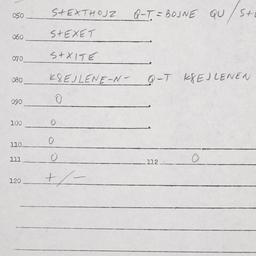 050 S+EXTHOJZ Q-T=BOJNE QU/S+
060 S+EXET
070 S+XITE
080 K8EJLENE-N- Q-T K8EJLENEN
090 0
100 0
110 0
111 0 112 0
120 +/-